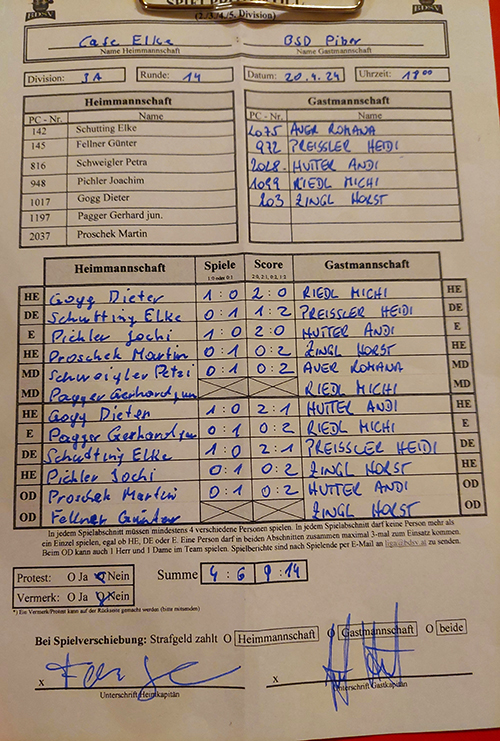 BDSV BDSV
(2./3./4./5. Division)
Cafe Elke BSD Piber
Name Heimmannschaft Name Gastmannschaft
Division: 3A Runde: 14 Datum: 20.4.24 Uhrzeit: 18 00
Heimmannschaft Gastmannschaft
PC - Nr. Name PC - Nr. Name
142 Schutting Elke 2075 AUER ROMANA
145 Fellner Günter 972 PREISSLER HEIDI
816 Schweigler Petra 2028 HUTTER ANDI
948 Pichler Joachim 1099 RIEDL MICHI
1017 Gogg Dieter 203 ZINGL HORST
1197 Pagger Gerhard jun.
2037 Proschek Martin
Heimmannschaft Spiele Score Gastmannschaft
1:0 oder 0:1 2:0, 2:1, 0:2, 1:2
HE Gogg Dieter 1:0 2:0 RIEDL MICHI HE
DE Schutting Elke 0:1 1:2 PREISSLER HEIDI DE
E Pichler Jochi 1:0 2:0 HUTTER ANDI E
HE Proschek Martin 0:1 0:2 ZINGL HORST HE
MD Schweigler Petri 0:1 0:2 AUER ROMANA MD
MD Pagger Gerhard jun RIEDL MICHI MD
HE Gogg Dieter 1:0 2:1 HUTTER ANDI HE
E Pagger Gerhard jun 0:1 0:2 RIEDL MICHI E
DE Schutting Elke 1:0 2:1 PREISSLER HEIDI DE
HE Pichler Jochi 0:1 0:2 ZINGL HORST HE
OD Proschek Martin 0:1 0:2 HUTTER ANDI OD
OD Fellner Günter ZINGL HORST OD
In jedem Spielabschnitt müssen mindestens 4 verschiedene Personen spielen. In jedem Spielabschnitt darf keine Person mehr als
ein Einzel spielen, egal ob HE, DE oder E. Eine Person darf in beiden Abschnitten zusammen maximal 3-mal zum Einsatz kommen.
Beim OD kann auch 1 Herr und 1 Dame im Team spielen. Spielberichte sind nach Spielende per E-Mail an liga@bdsv.at zu senden.
Protest: O Ja O Nein Summe 4:6 9:14
Vermerk: O Ja O Nein
*) Ein Vermerk/Protest kann auf der Rückseite gemacht werden (bitte ankreuzen)
Bei Spielverschiebung: Strafgeld zahlt O Heimmannschaft O Gastmannschaft O beide
x x
Unterschrift Heimkapitän Unterschrift Gastkapitän